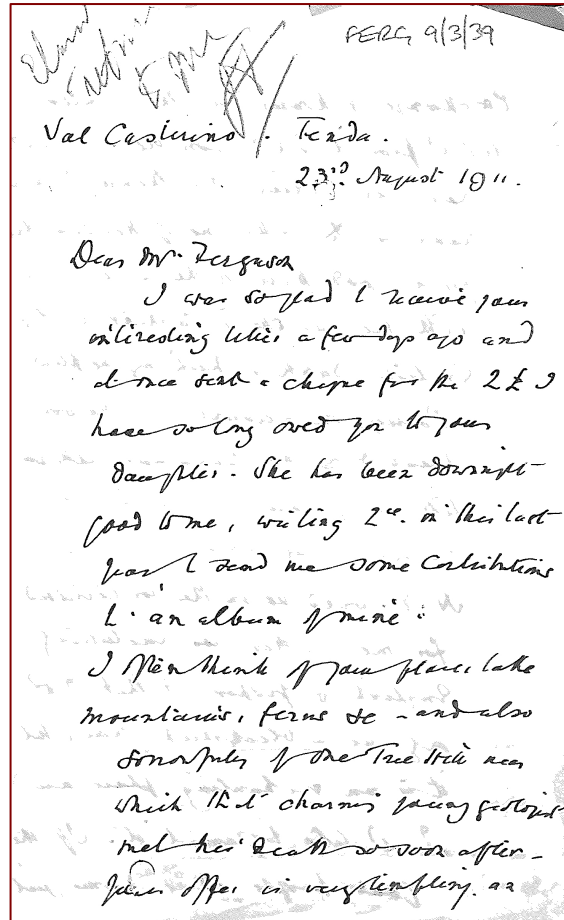 FERG 9/3/39
Val Casterino. Tenda.
23rd. August 1911.
Dear Mr. Ferguson
I was so glad to receive your
interesting letter a few days ago and
at once sent a cheque for the 2£ I
have so long owed you to your
daughter. She has been downright
good to me, writing 2ce. in this last
year to send me some contributions
to an album of mine:
I often think of your place, lake
mountains, ferns &c - and also
sorrowfully of One Tree Hill near
which that charming young geologist
met his death so soon after -
your offer is very tempting. an